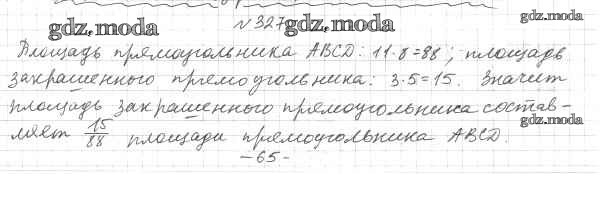 gdz.moda
№327
gdz.moda
gdz.moda
Площадь прямоугольника ABCD: 11·8=88; площадь
закрашенного прямоугольника: 3·5=15. Значит
площадь закрашенного прямоугольника состав-
gdz.moda
ляет 15/88 площади прямоугольника ABCD.
-65-